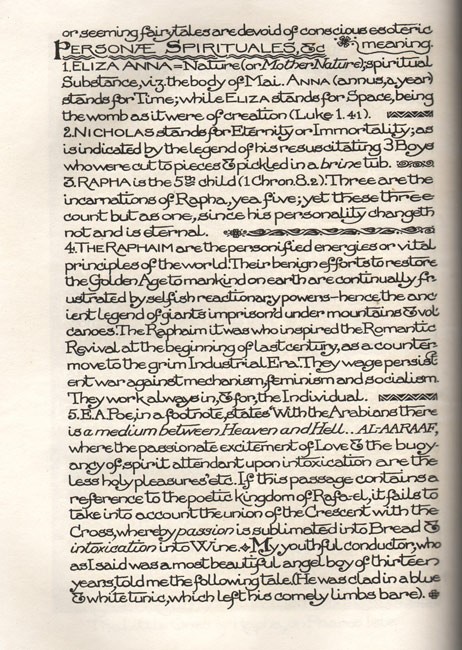 or seeming fairytales are devoid of conscious esoteric
PERSONÆ SPIRITUALES, &c (meaning.
1. ELIZA ANNA = Nature (or Mother Nature); spiritual
Substance, viz. the body of Mai. ANNA (annus, a year)
stands for Time; while ELIZA stands for Space, being
the womb as it were of creation (Luke 1.41).
2. NICHOLAS stands for Eternity or Immortality; as
is indicated by the legend of his resuscitating 3 Boys
who were cut to pieces & pickled in a brine tub.
3. RAPHA is the 5th child (1 Chron. 8.2). Three are the
incarnations of Rapha, yea five; yet these three
count but as one, since his personality changeth
not and is eternal.
4. THE RAPHAIM are the personified energies or vital
principles of the world. Their benign efforts to restore
the Golden Age to mankind on earth are continually fr
ustrated by selfish reactionary powers – hence the anc
ient legend of giants imprison'd under mountains & vol
canoes. The Raphaim it was who inspired the Romantic
Revival at the beginning of last century, as a counter-
move to the grim Industrial Era. They wage persist
ent war against mechanism, feminism and socialism.
They work always in, & for, the Individual.
5. E.A. Poe, in a footnote, states 'With the Arabians there
is a medium between Heaven and Hell... AL-AARAAF,
where the passionate excitement of Love & the buoy-
ancy of spirit attendant upon intoxication are the
less holy pleasures' etc. If this passage contains a
reference to the poetic kingdom of Rafa-el, it fails to
take into account the union of the Crescent with the
Cross, whereby passion is sublimated into Bread &
intoxication into Wine. My youthful conductor, who
as I said was a most beautiful angel boy of thirteen
years, told me the following tale. (He was clad in a blue
& white tunic, which left his comely limbs bare).